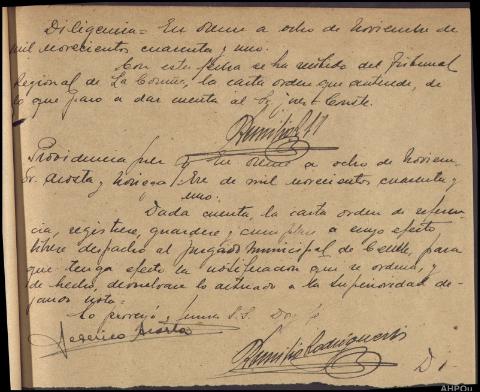 Diligencia = En Orense a ocho de Noviembre de
mil novecientos cuarenta y uno.
Con esta fecha se ha recibido del Tribunal
Regional de La Coruña, la carta orden que antecede, de
lo que paso a dar cuenta al Sr. Juez. Certifico.
Providencia Juez Sr. En Orense a ocho de Noviem
Sr. Acosta y Noriega bre de mil novecientos cuarenta y
uno.
Dada cuenta, la carta orden de referen
cia, registrese, guardese y cumplase a cuyo efecto
librese despacho al Juzgado Municipal de Celle, para
que tenga efecto la notificacion que se ordena, y
de hecho, devuelvase lo actuado a la Superioridad de-
jando nota =
Lo proveyó y firma S.S. Doy fe
Federico Acosta
Remigio Rodriguez
Di
AHPOu